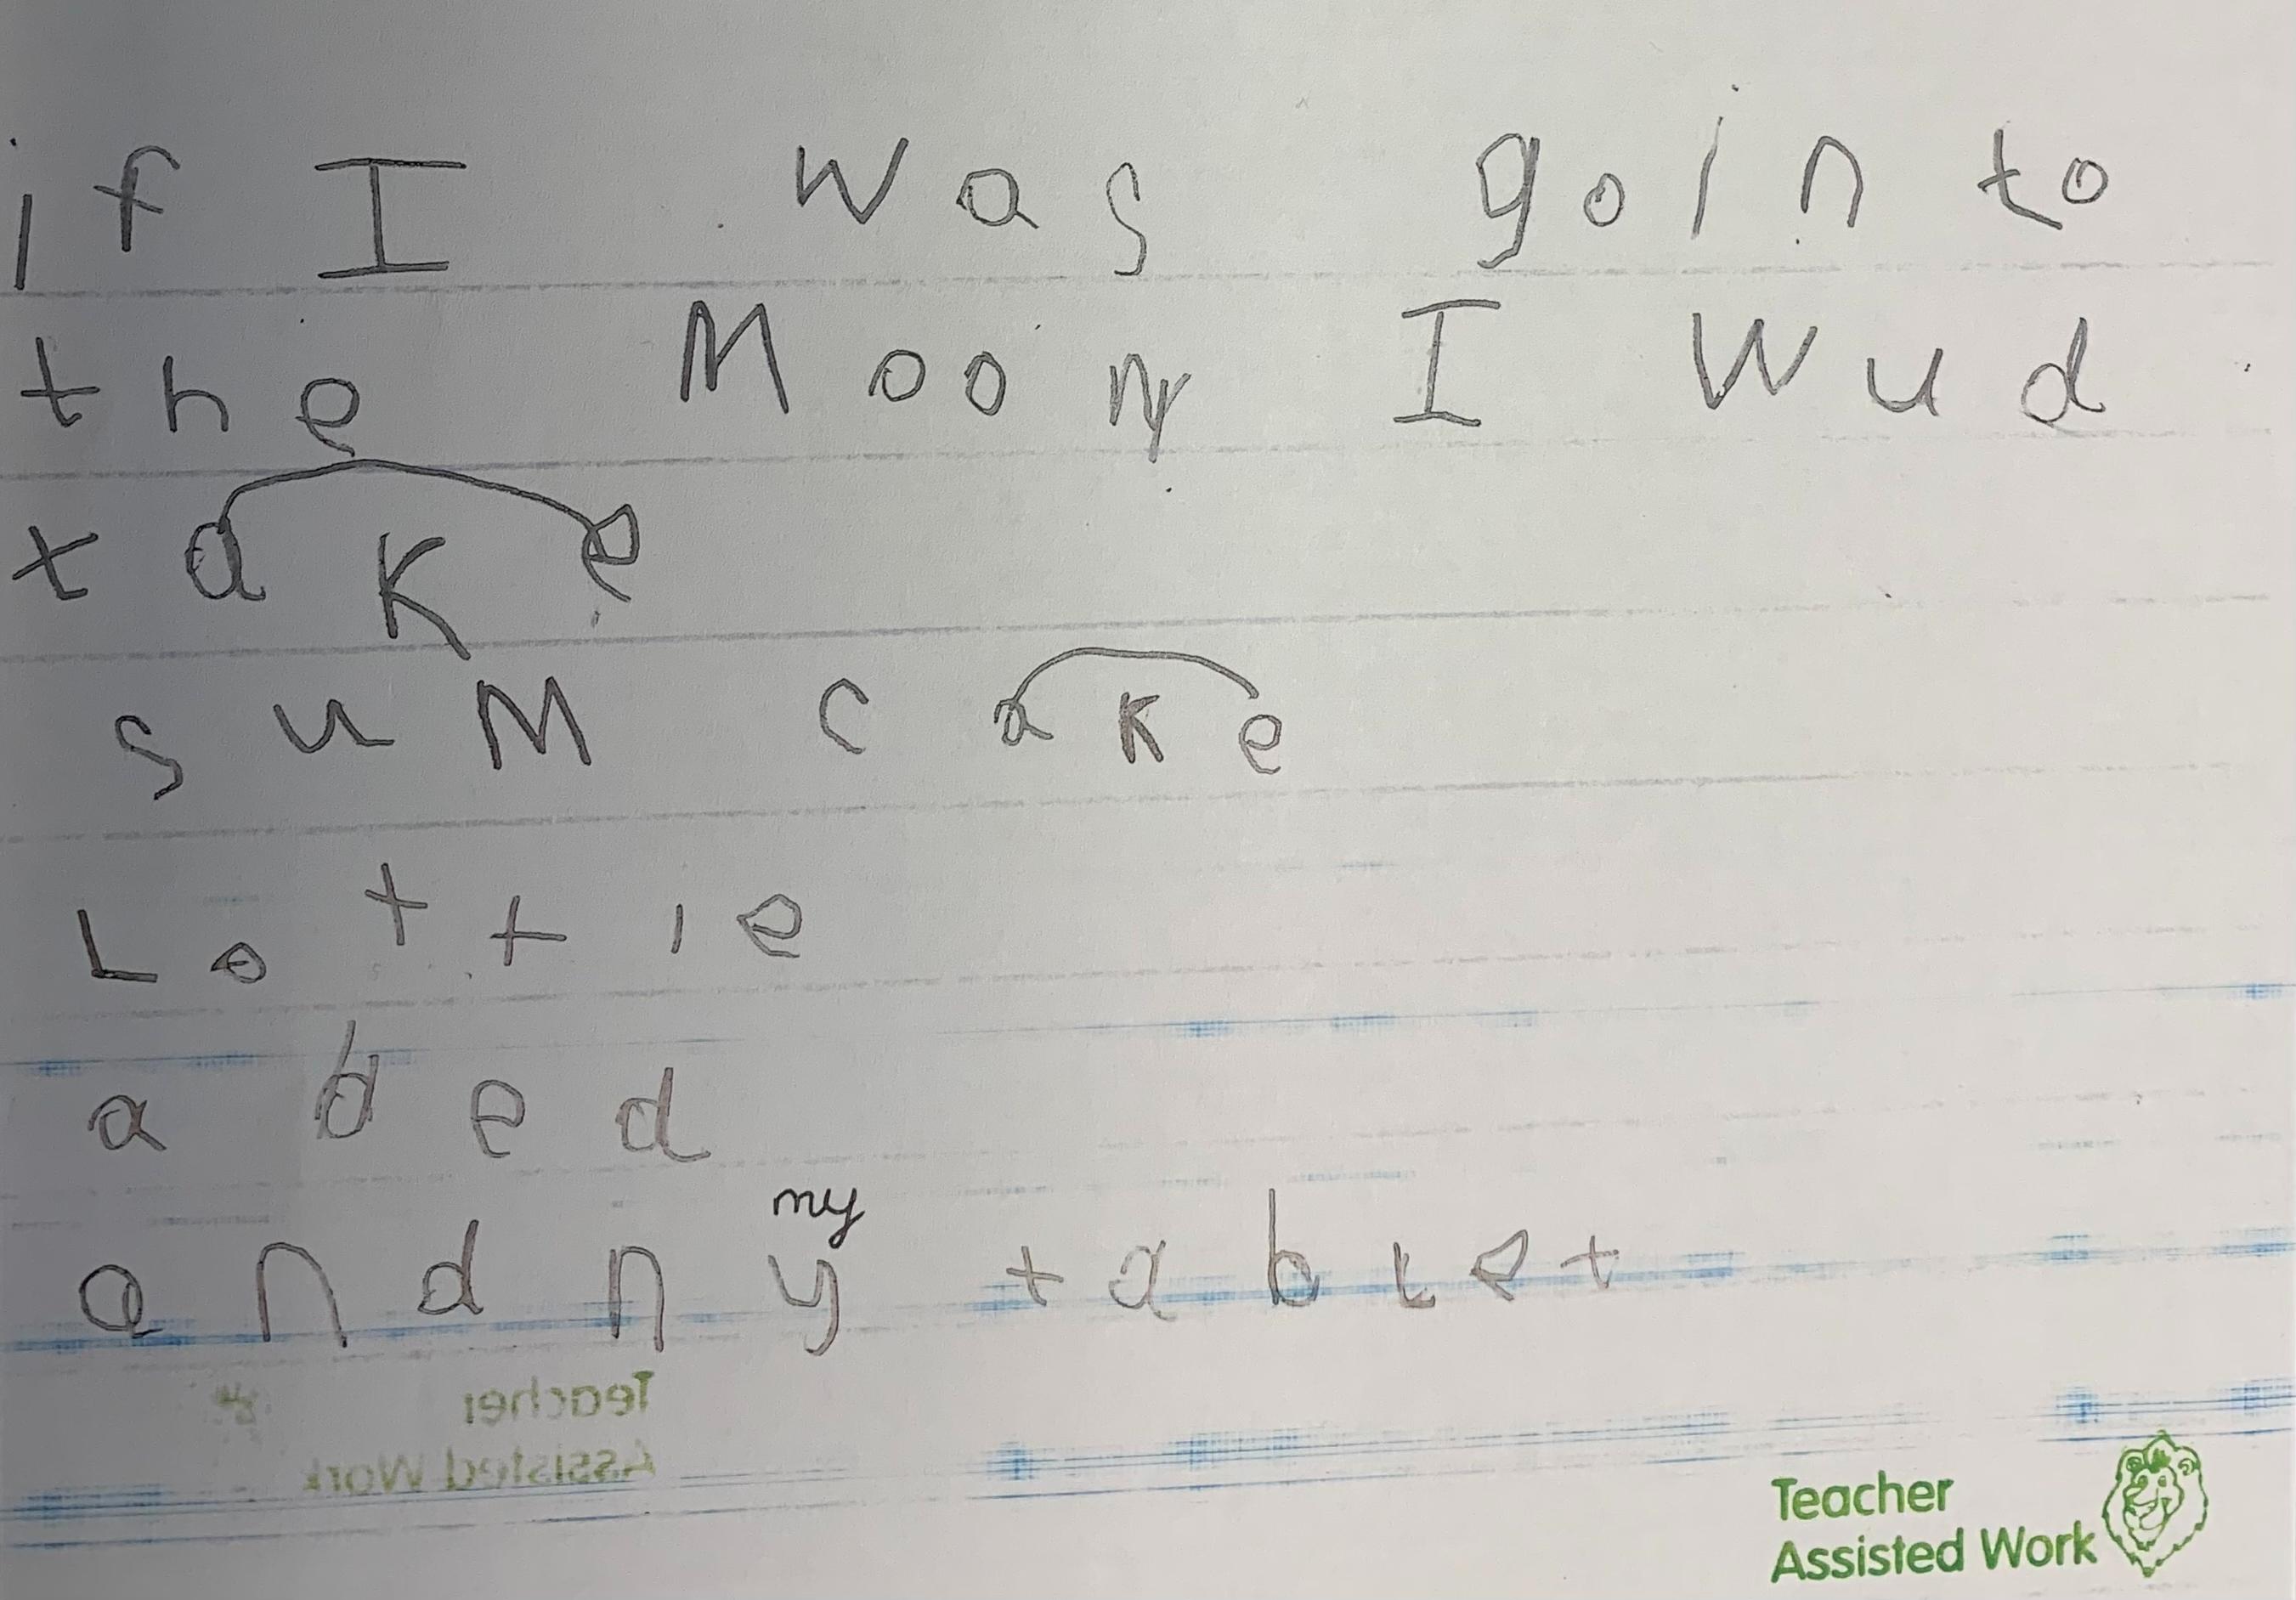 if I was goin to
the Moon I Wud
take
sum cake
Lottie
a bed
my
and ny tablet
Teacher
Assisted Work
Teacher
Assisted Work